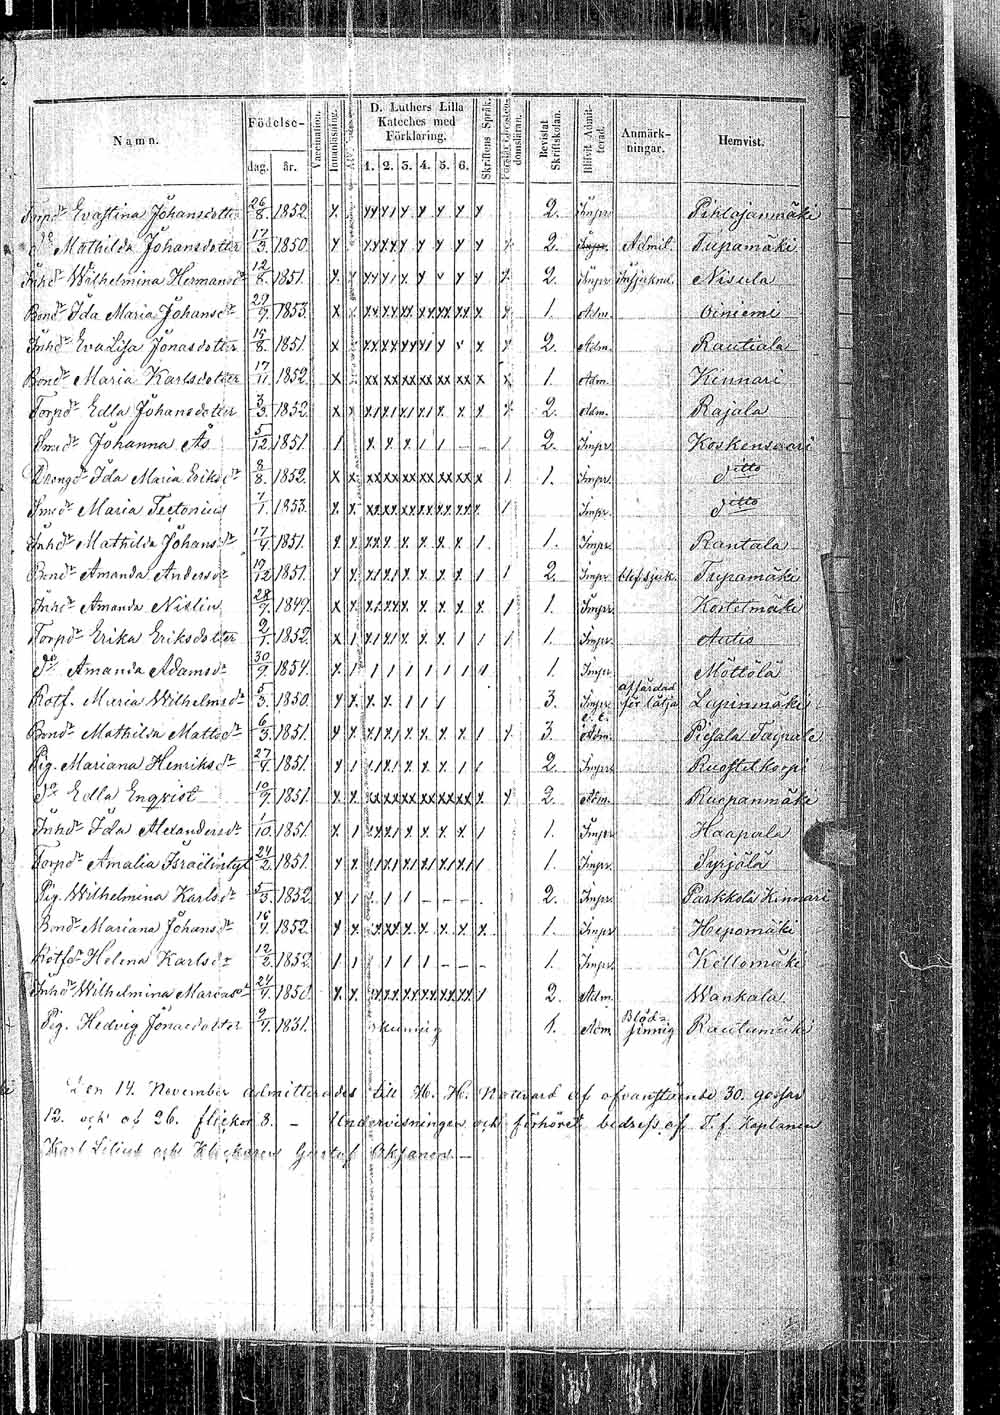 Namn. Födelse- dag. år. Vaccination. Innanläsning. D. Luthers Lilla Kateches med Förklaring. 1. 2. 3. 4. 5. 6. Skriftens Språk. Bevistat Skriftskolan. Blifvit Admitterad. Anmärkningar. Hemvist.
Torpdr Evastina Johansdotter 26/8. 1852. 2. Impr. Pihlajanmäki
do Mathilda Johansdotter 17/3. 1850. 2. Impr. Admit. Tupamäki
Inhdr Wilhelmina Hermansdr 12/8. 1851. 2. Impr. Nisula
Bonddr Ida Maria Johansdr 29/9. 1853. 1. Adm. Oiniemi
Inhdr Eva Lisa Jonasdotter 15/8. 1851. 2. Adm. Rautiala
Bonddr Maria Karlsdotter 17/11. 1852. 1. Adm. Kinnari
Torpdr Edla Johansdotter 3/3. 1852. 2. Adm. Rajala
Smeddr Johanna Ås 5/12. 1851. 2. Impr. Koskensaari
Drengdr Ida Maria Eriksdr 8/8. 1852. 1. Impr. ditto
Smeddr Maria Tectonius 7/1. 1853. Impr. ditto
Inhdr Mathilda Johansdr 17/4. 1851. 1. Impr. Rantala
Bonddr Amanda Andersdr 19/12. 1851. 2. Impr. Tupamäki
Inhdr Amanda Nislin 28/7. 1849. 1. Impr. Kortetmäki
Torpdr Erika Eriksdotter 2/1. 1852. 1. Impr. Autio
do Amanda Adamsdr 30/9. 1854. 1. Impr. Möttölä
Rotf. Maria Wilhelmsdr 5/3. 1850. 3. Impr. affärdad för lätja Lapinmäki
Bonddr Mathilda Mattsdr 6/3. 1851. 3. Adm. Piesala Taipale
Pig. Mariana Henriksdr 27/4. 1851. 2. Impr. Ruostetkorpi
do Edla Enqvist 10/9. 1851. 2. Adm. Ruopanmäki
Inhdr Ida Alexandersdr 1/10. 1851. 1. Impr. Haapala
Torpdr Amalia Israëlintyt 24/2. 1851. 1. Impr. Syrjälä
Pig. Wilhelmina Karlsdr 5/3. 1852. 2. Impr. Parkkola Kinnari
Bonddr Mariana Johansdr 16/4. 1852. 1. Impr. Hepomäki
Rotfdr Helena Karlsdr 12/2. 1852 1. Impr. Kellomäki
Inhdr Wilhelmina Mariasdr 24/4. 1850. 2. Adm. Wankala
Pig. Hedvig Jonasdotter 9/4. 1831. okunnig 1. Adm. Blödsinnig Rautamäki
Den 14. November admitterades till H. H. Nattvard af ofvanstående 30. gossar
12. och af 26. flickor 8. – Undervisningen och förhöret bedrefs af T. f. Kaplanen
Karl Lilius och Klockaren Gustaf Oksanen –